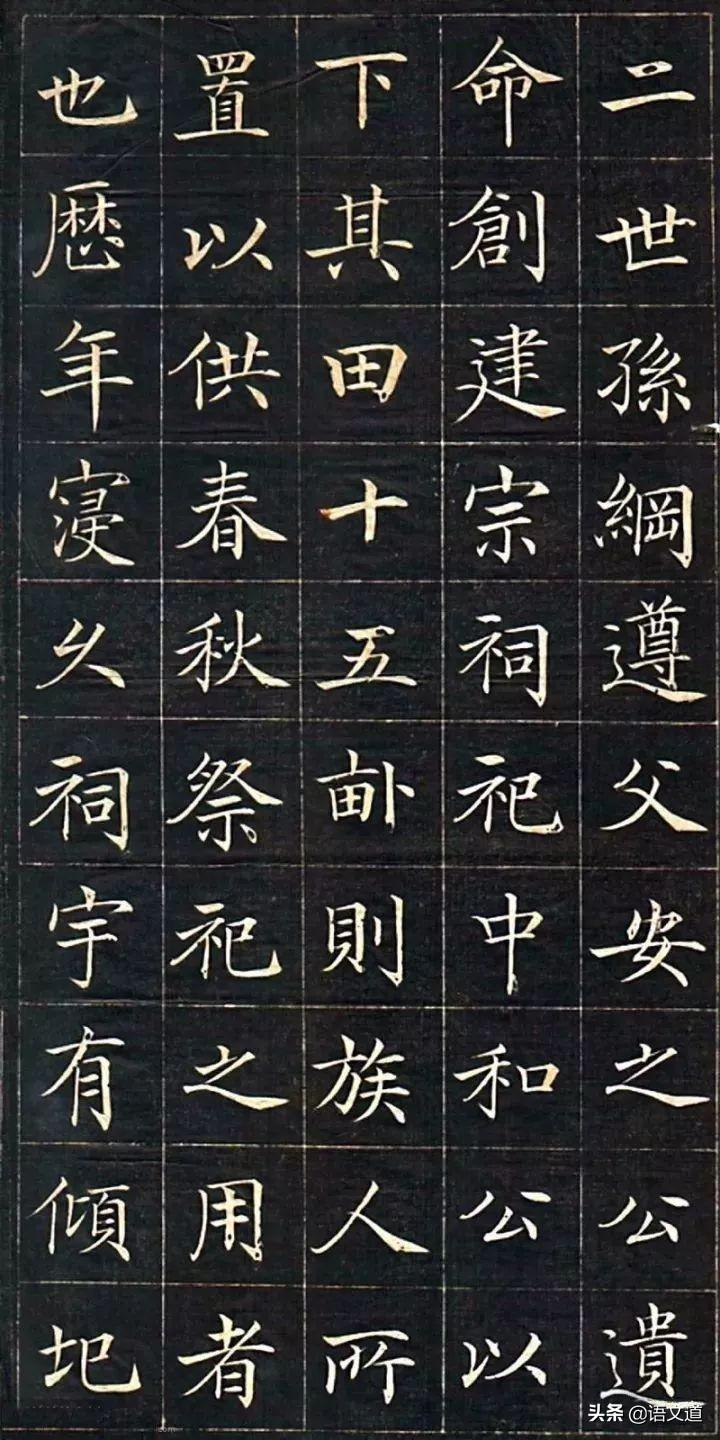 二世孫綱遵父安之公遺
命創建宗祠祀中和公以
下其田十五畝則族人所
置以供春秋祭祀之用者
也歷年寖久祠宇有傾圯
头条 @语文道